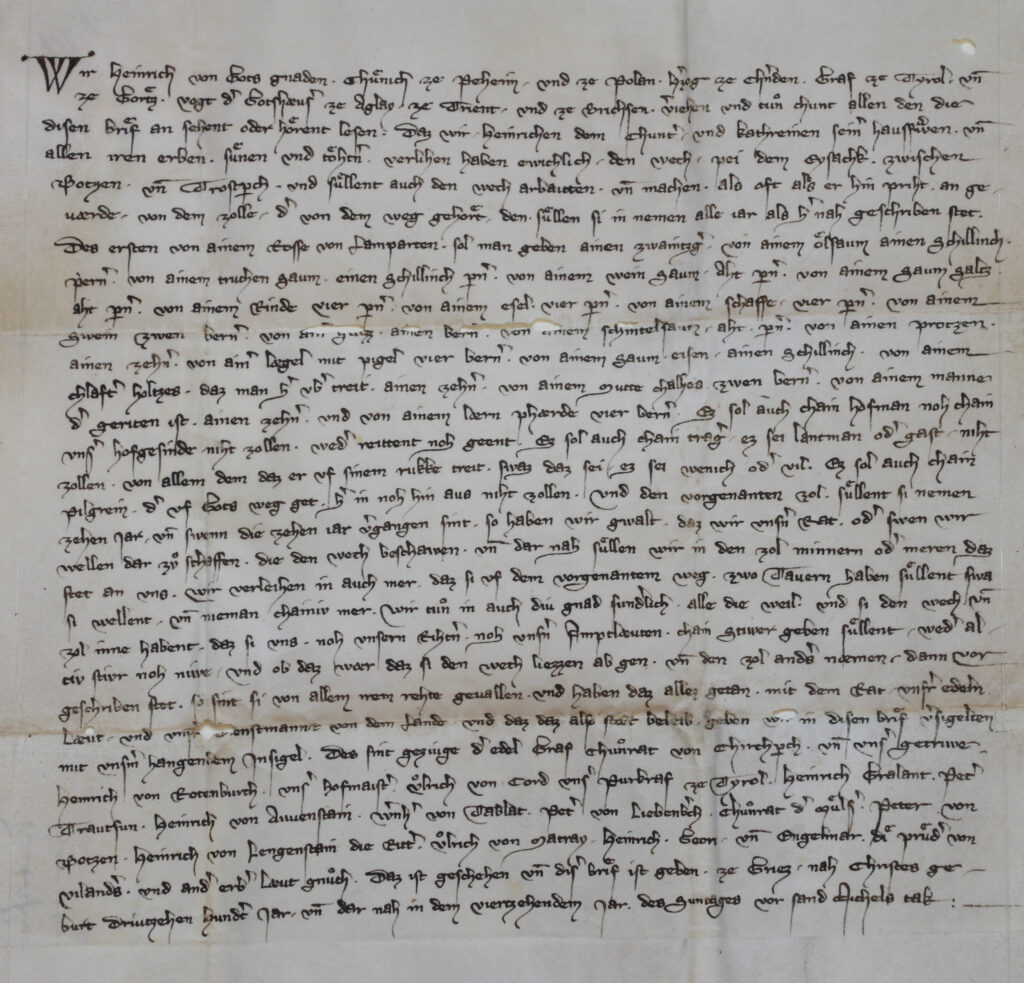 Wir Heinrich von Gots gnaden. Chuͤnich ze Peheim. und ze Polan. Hͤzog ze Chͤnden. Graf ze Tyrol. vn̄
ze Gortz. vogt dˀ Gotsheusˀ ze Aglay. ze Trient. und ze Brichsen. vˀiehen und tuͦn chunt allen den die
disen brif an sehent oder hoͤrent lesen. Daz wir. Heinrichen dem Chunt. und kathreinen seinˀ hausfrͦwen. vn̄
allen iren erben. suͤnen und toͤhtˀn. verlihen haben ewichlich. den wech. pei dem Eysachk. zwischen
Botzen. vn̄ Trostpˀch. und suͤllent auch den wech arbaitten. vn̄ machen. als oft als er hin priht. an ge-
vaerde. von dem zolle. dˀ von dem weg gehoͤrt. den suͤllen si in nemen alle iar als hˀ nah geschriben stet.
Des ersten von ainem Rosse von Lamparten. sol man geben ainen zwaintzgˀ. von ainem oͤlsaum ainen schillinch.
pernˀ. von ainem truchen saum. einen schillinch pˀnˀ. von ainem wein saum. Aht pˀnˀ. von ainem saum saltz.
aht pˀnˀ. von ainem Rinde vier pˀnˀ. von ainem esel. vier pˀnˀ. von ainem schaffe. vier pˀnˀ. von ainem
swein zwen bernˀ. von ainen bernˀ. von einem schmelsaum. aht. pˀnˀ. von ainen protzen.
ainen zehnˀ. von aimˀ laegel mit pigel vier bernˀ. von ainem saum. eisen. ainen schillinch. von ainem
chlaftˀ holtzes. daz man hˀ vbˀ treit. ainen zehnˀ. von ainem mutte chalhes. zwen bernˀ. von ainem manne
dˀ geriten ist. ainen zehnˀ. und von ainem lern phaerde vier bernˀ. Ez sol auch chain hofman noh chain
vnsˀ hofgesinde niht zollen. wedˀ reittent noh geent. Ez sol auch chain tragˀ. ez sei lantman odˀ gast. niht
zollen. von allem dem daz er uf sinem rukke treit. swaz daz sei. ez sei wenich odˀ vil. Ez sol auch chain
pilgrein. dˀ uf Gots weg get. hˀ in noh hin aus niht zollen. und den vorgenanten zol. suͤllent si nemen
zehen Jar. vn̄ swenn die zehen iar vˀgangen sint. so haben wir gwalt. daz wir unsˀn Rat. odˀ swen wir
wellen dar zuͦ schaffen. die den wech beschawen. vn̄ dar nah suͤllen wir in den zol minnern odˀ meren. daz
stet an uns. wir verleihen in auch mer. daz si uf dem vorgenantem weg. zwo Tavern haben suͤllent swa
si wellent. vn̄ nieman chainiv mer. wir tuͦn in auch div gnad sundˀlich. alle die weil. und si den wech. vn̄
zol inne habent. daz si uns. noh unsern Rihtˀn. noh vnsˀn Amptlaeuten. chain stiwer geben suͤllent. wedˀ al-
tiv stivr noh niwe. und ob daz waer daz si den wech liezzen ab gen. vn̄ den zol andˀs naemen. dann vor
geschriben stet. so sint si von allem irem rehte gevallen. und haben daz allez getan. mit dem Rat. vnsˀr edeln
Laeut. und von dem Lande. und daz daz also staet beleib. geben in disen brif vˀsigelten
mit unsˀm hangendem Insigel. Des sint gezivge dˀ edel Graf Chuͦnrat von Chirchpˀch. vn̄ vnsˀ getriwe.
Heinrich von Rotenburch. vnsˀ hofmaistˀ. Uͦlrich von Cord vnsˀ Purkraf ze Tyrol. Heinrich Gralant. Petˀ
Trautsun. Heinrich von Awenstain. Wˀnhˀ von Tablat. Petˀ von Liebenbˀch. Chuͦnrat dˀ Muͤlsˀ. Peter von
Botzen. Heinrich von Lengenstain die Rittˀ. Uͦlrich von Matray. Heinrich. Geori. vn̄ Engelmar. di pruͤdˀ von
vilandˀs. und andˀ erbˀ Laeut gnuͦch. Daz ist geschehen vn̄ disˀ brif ist geben. ze Griez. nah Christes ge-
burt drivtzehen hundˀt Jar. vn̄ dar nah in dem viertzehendem Jar. des Suntages vor sand Michels tak: